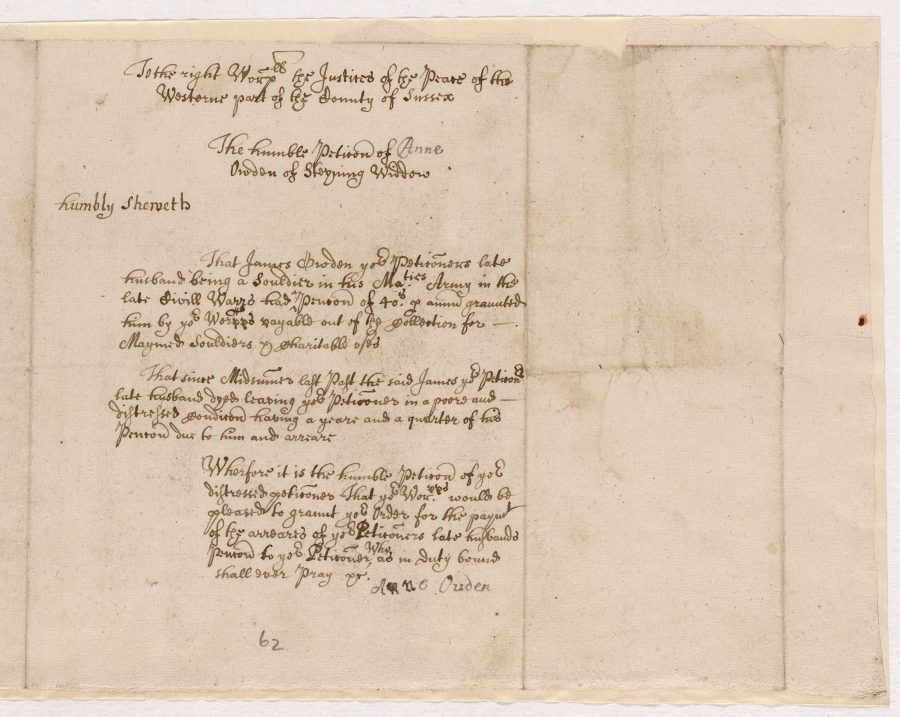 To the right Worpll the Justices of the Peace of the
Westerne part of the County of Sussex
The humble Peticon of Anne
Owden of Steyning Widdow
humbly Sheweth
That James Owden yor Peticoners late
husband being a Souldier in his Maties Army in the
late Civill Warrs had a Pencon of 40s p annu graunted
him by yor Worpps payable out of the Collection for —
Maymed Souldiers & Charitable uses
That since Midsumer last Past the said James yor Peticonrs
late husband dyed leaving yor Peticoner in a poore and —
distressed Condicon having a yeare and a quarter of his
Pencon due to him and arreare
Wherfore it is the humble Peticon of yor
distressed peticoner That yor Worpps would be
pleased to graunt yor Order for the paymt
of the arreares of yor Peticoners late husbands
Pencon to yor Peticoner Who as in duty bound
shall ever Pray &c.
Anne Ouden
62